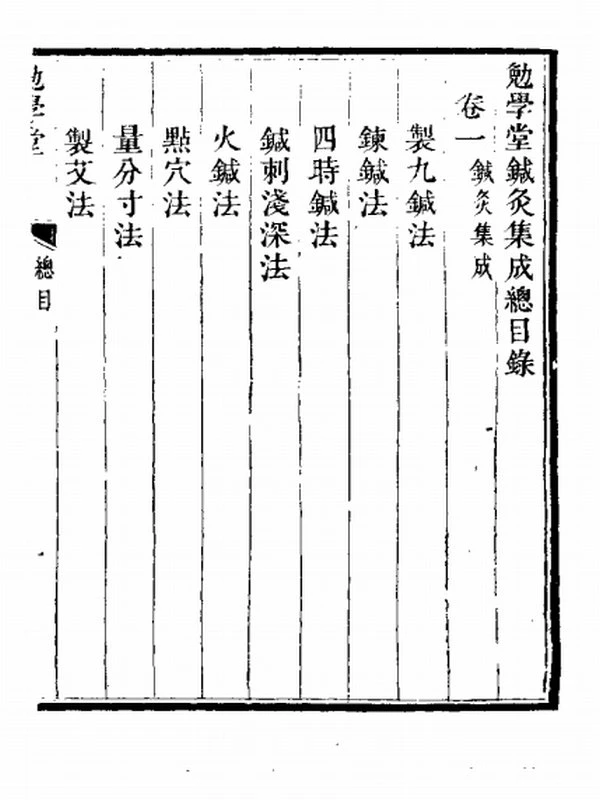 勉學堂鍼灸集成總目錄
卷一 鍼灸集成
製九鍼法
鍊鍼法
四時鍼法
鍼刺淺深法
火鍼法
點穴法
量分寸法
製艾法
勉學堂 總目